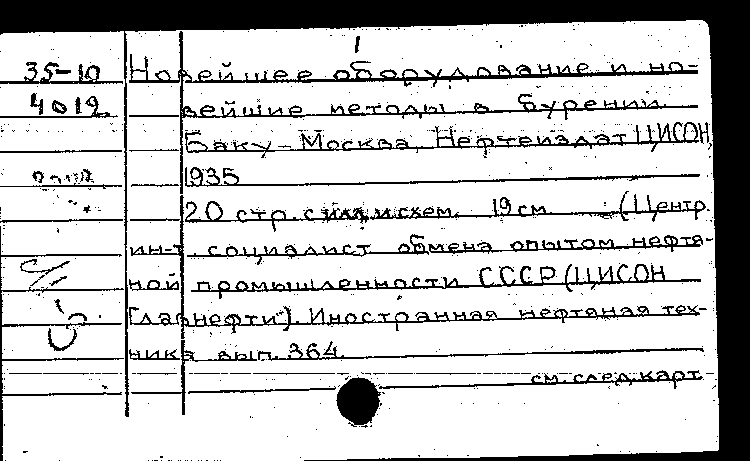 1
35-10 Новейшее оборудование и но-
4012 вейшие методы в бурении.
Баку-Москва, Нефтеиздат ЦИСОН,
1935
20 стр. с илл. и схем. 19 см. (Центр.
ин-т социалист. обмена опытом нефтя-
ной промышленности СССР (ЦИСОН
Главнефти). Иностранная нефтяная тех-
ника вып. 364.
см. след. карт.